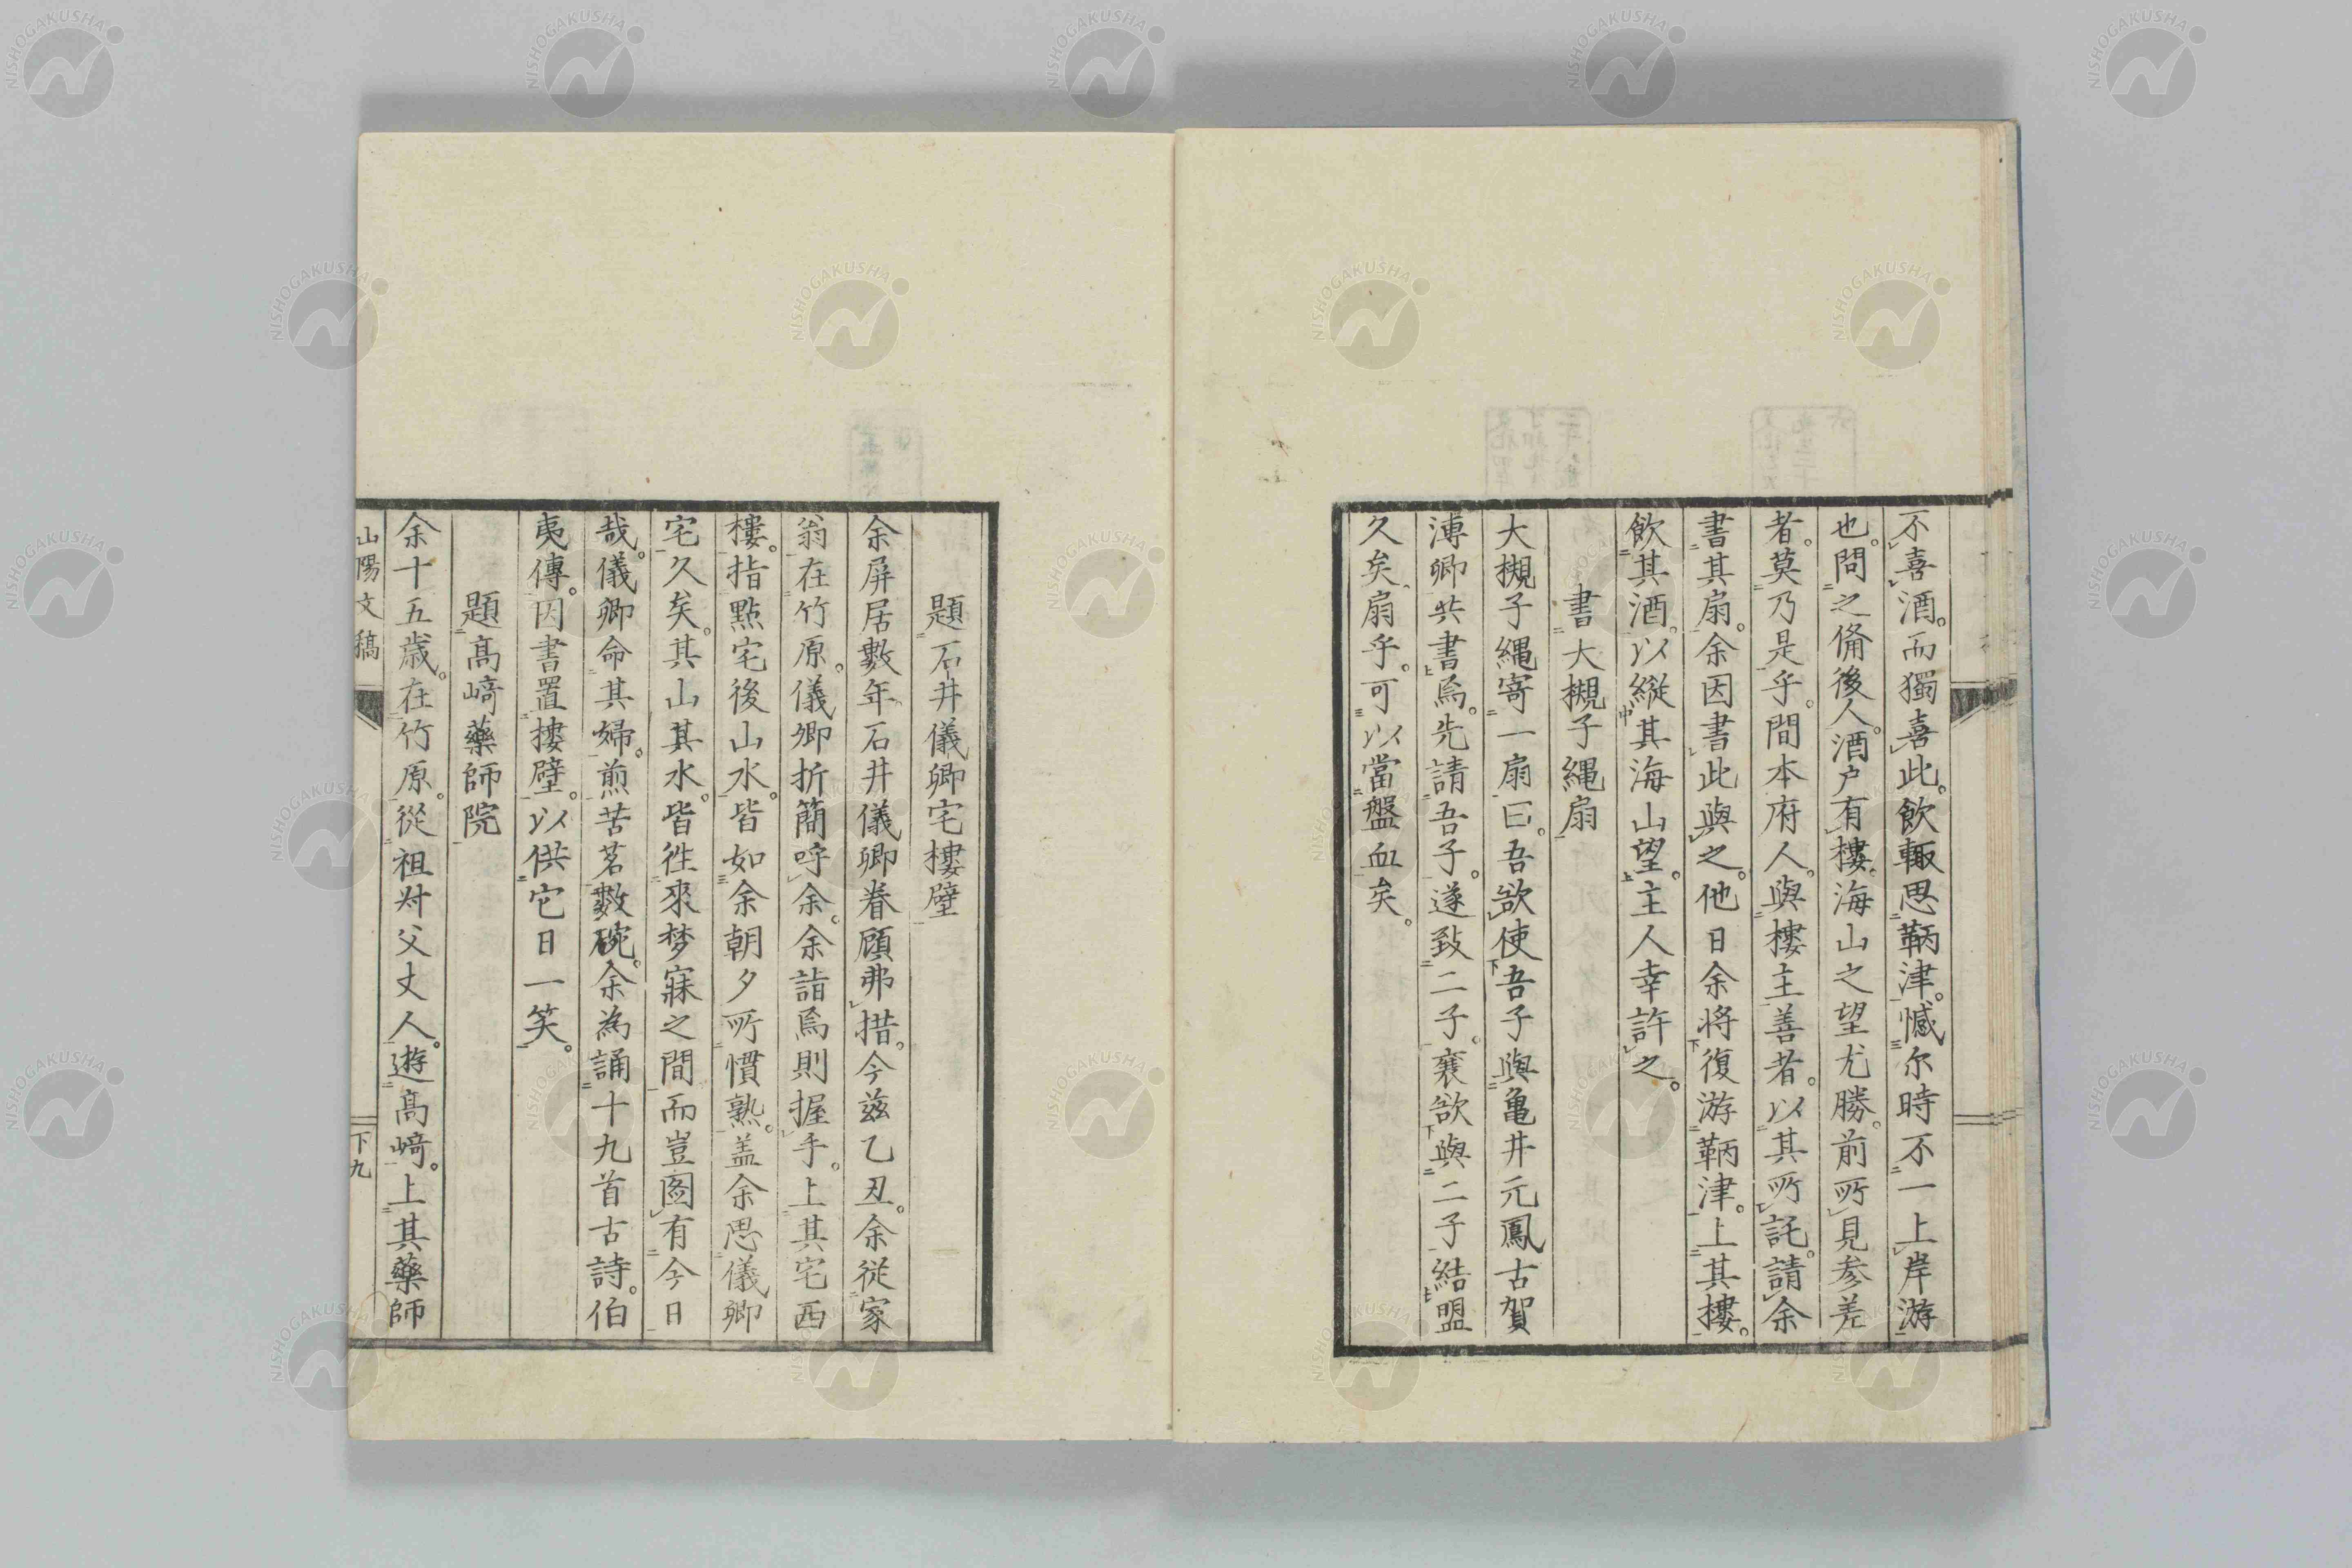 不喜酒。而獨喜此。飲輙思鞆津。憾尔時不一上岸游
也。問之備後人。酒户有樓。海山之望尤勝。前所見参差
者。莫乃是乎。間本府人。與樓主善者。以其所託。請余
書其扇。余因書此與之。他日余将復游鞆津。上其樓。
飲其酒。以縦其海山望。主人幸許之。
書大槻子繩扇
大槻子繩寄一扇曰。吾欲使吾子與亀井元鳳古賀
溥卿共書焉。先請吾子。遂致二子。襄欲與二子結盟
久矣。扇乎。可以當盤血矣。
題石井儀卿宅樓壁
余屏居數年石井儀卿眷顧弗措。今兹乙丑。余從家
翁在竹原。儀卿折簡呼余。余詣焉則握手。上其宅西
樓。指點宅後山水。皆如余朝夕所慣熟。盖余思儀卿
宅久矣。其山其水。皆徃來梦寐之間而豈図有今日
哉。儀卿命其婦。煎苦茗數碗。余為誦十九首古詩。伯
夷傳。因書置樓壁。以供它日一笑。
題髙﨑藥師院
余十五歳。在竹原。從祖叔父丈人。遊髙﨑。上其藥師
山陽文稿
下九
NISHOGAKUSHA